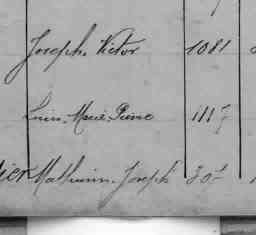 Joseph Victor 1081
Louis Marie Pierre 1117
ier Mathurin Joseph 30